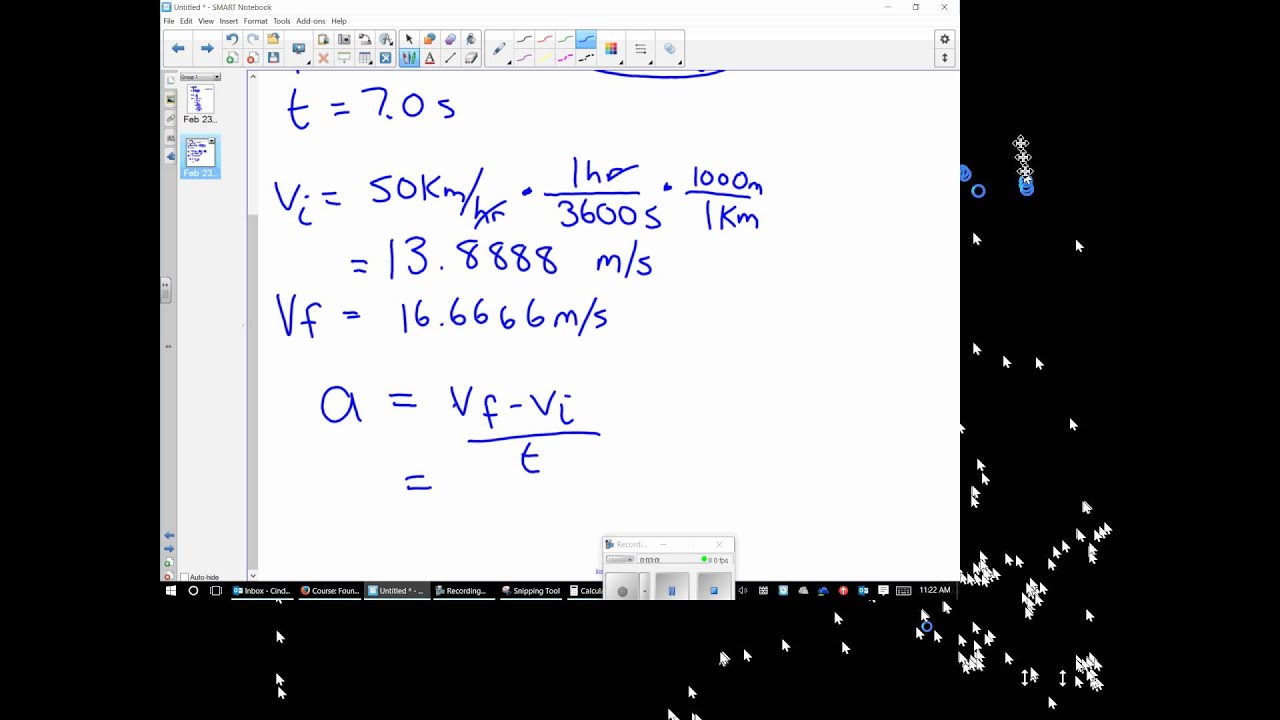 Untitled * - SMART Notebook
File Edit View Insert Format Tools Add-ons Help
Group 1
Feb 23...
Feb 23...
t = 7.0 s
Vi = 50Km/hr • 1hr/3600s • 1000m/1Km
= 13.8888 m/s
Vf = 16.6666 m/s
a = Vf - Vi
t
=
Recordi...
0:03:0
8.0 fps
Auto-hide
Inbox - Cind... Course: Foun... Untitled * - ... Recording... Snipping Tool Calcula 11:22 AM